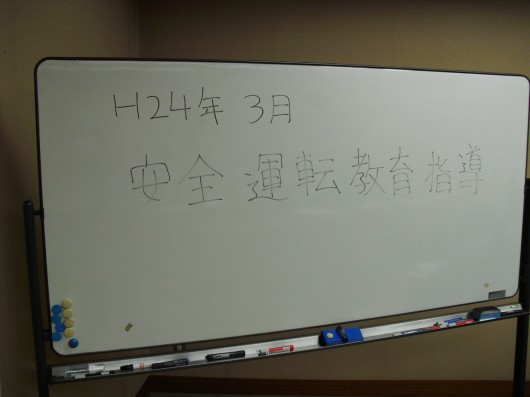 H24年 3月
安全運転教育指導